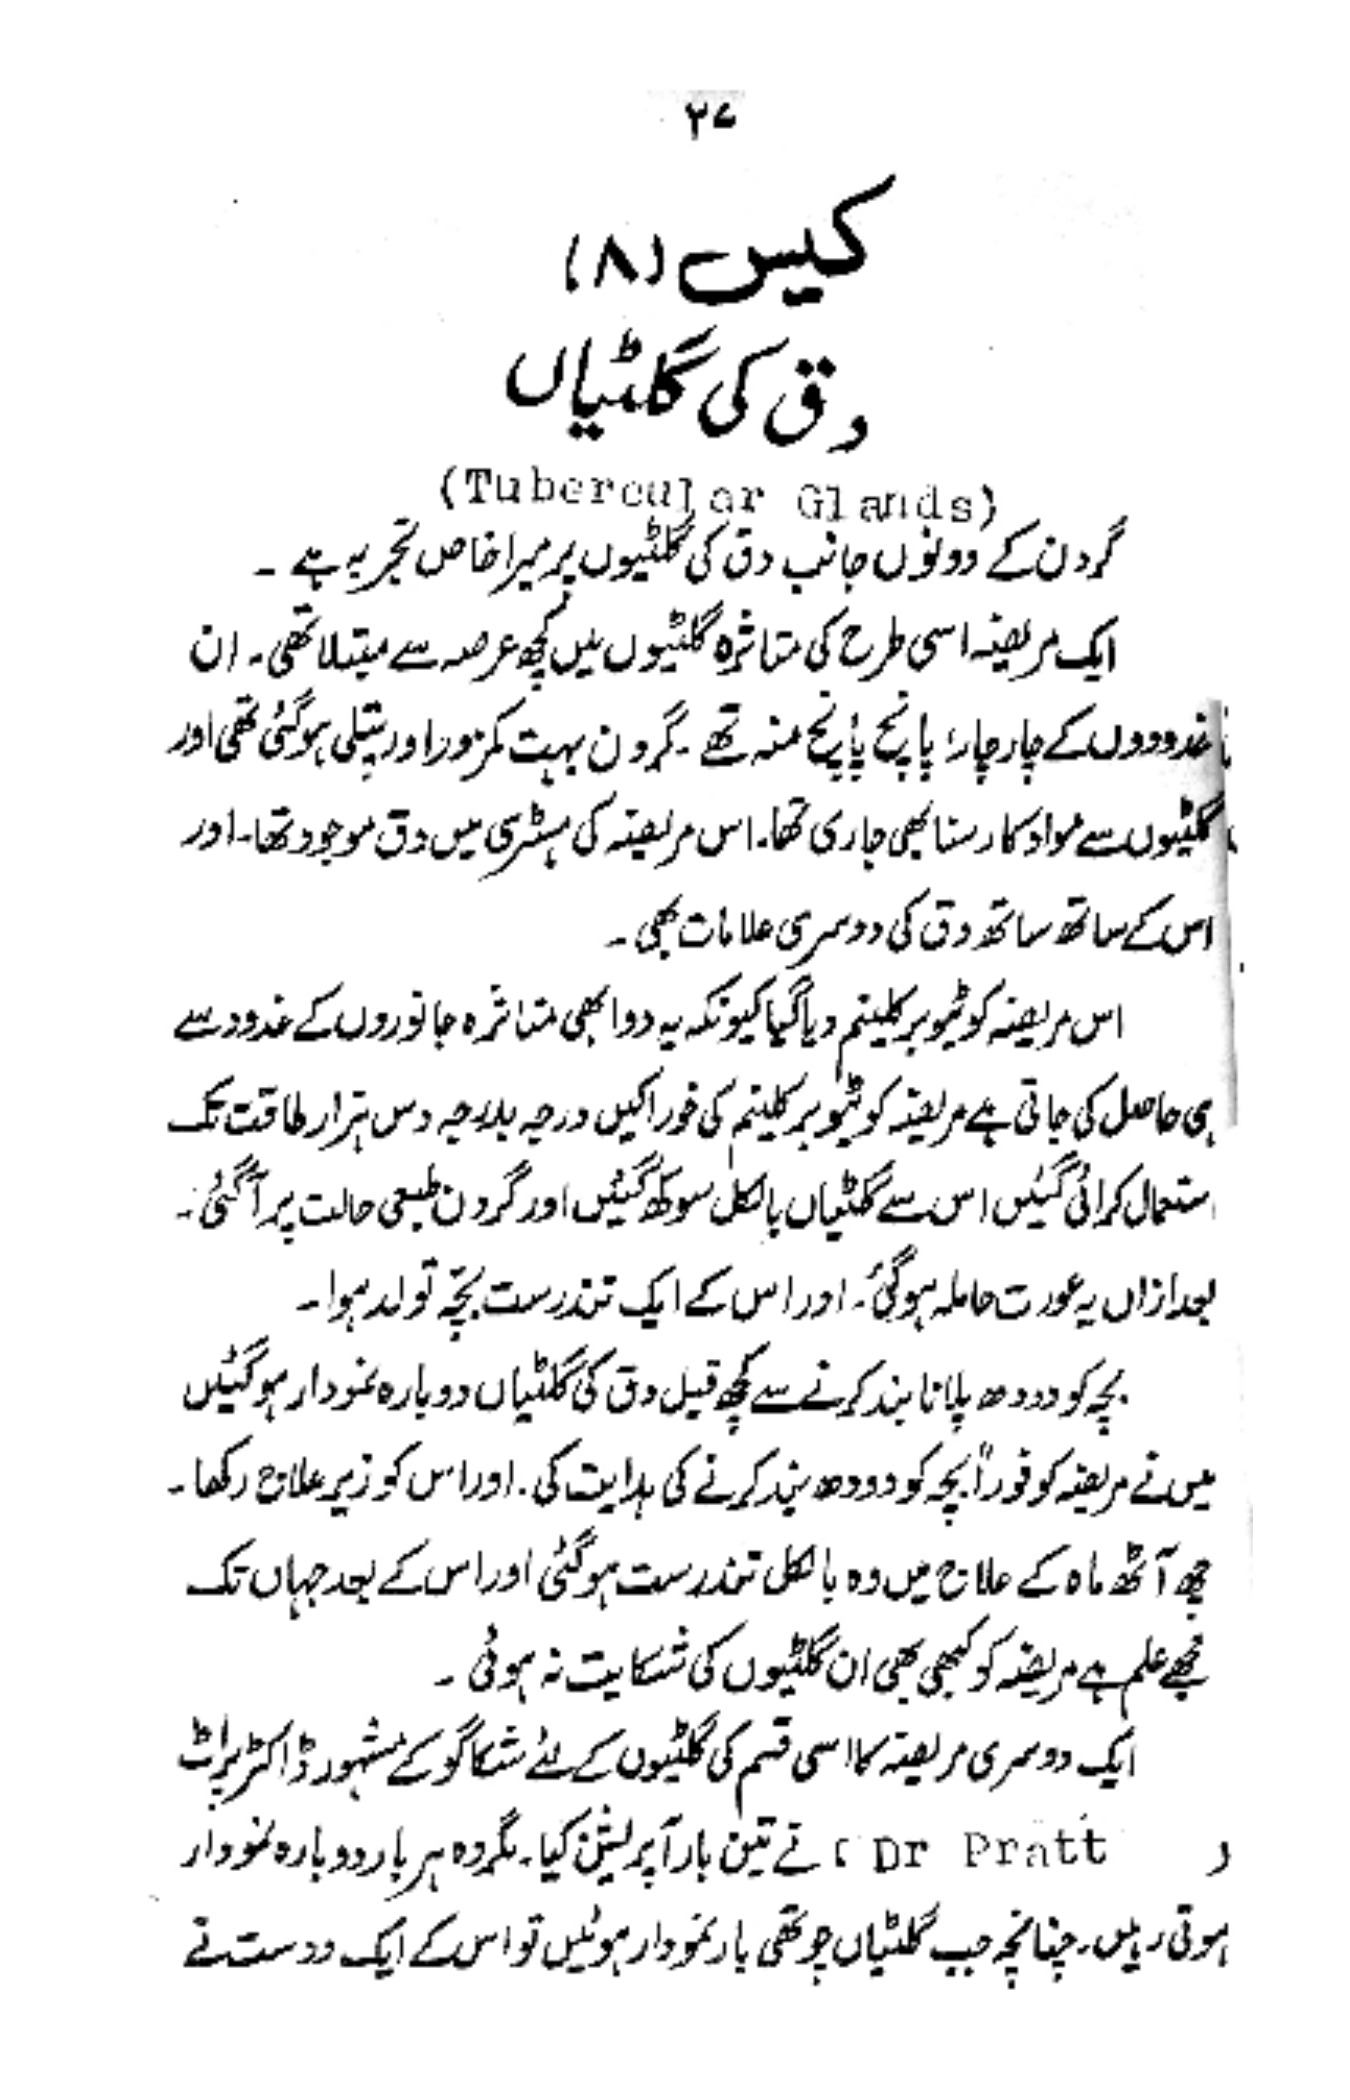 ۲۷
کیس (۸)
دق کی گلٹیاں
(Tubercular Glands)
گردن کے دونوں جانب دق کی گلٹیوں پر میرا خاص تجربہ ہے ۔
ایک مریضہ اسی طرح کی متاثرہ گلٹیوں میں کچھ عرصہ سے مبتلا تھی۔ ان
غدودوں کے چار چار، پانچ پانچ منہ تھے ۔ گردن بہت کمزور اور پتلی ہوگئی تھی اور
گلٹیوں سے مواد کا رسنا بھی جاری تھا۔ اس مریضہ کی ہسٹری میں دق موجود تھا۔ اور
اس کے ساتھ ساتھ دق کی دوسری علامات بھی ۔
اس مریضہ کو ٹیوبرکلینم دیا گیا کیونکہ یہ دوا بھی متاثرہ جانوروں کے غدود سے
ہی حاصل کی جاتی ہے مریضہ کو ٹیوبرکلینم کی خوراکیں درجہ بدرجہ دس ہزار طاقت تک
استعمال کرائی گئیں اس سے گلٹیاں بالکل سوکھ گئیں اور گردن طبعی حالت پر آگئی ۔
بعد ازاں یہ عورت حاملہ ہوگئی۔ اور اس کے ایک تندرست بچّہ تولد ہوا ۔
بچہ کو دودھ پلانا بند کرنے سے کچھ قبل دق کی گلٹیاں دوبارہ نمودار ہوگئیں
میں نے مریضہ کو فوراً بچہ کو دودھ بند کرنے کی ہدایت کی۔ اور اس کو زیر علاج رکھا ۔
چھ آٹھ ماہ کے علاج میں وہ بالکل تندرست ہوگئی اور اس کے بعد جہاں تک
مجھے علم ہے مریضہ کو کبھی بھی ان گلٹیوں کی شکایت نہ ہوئی ۔
ایک دوسری مریضہ کا اسی قسم کی گلٹیوں کے لئے شکاگو کے مشہور ڈاکٹر پراٹ
(Dr Pratt) نے تین بار آپریشن کیا۔ مگر وہ ہر بار دوبارہ نمودار
ہوتی رہیں۔ چنانچہ جب گلٹیاں چوتھی بار نمودار ہوئیں تو اس کے ایک دوست نے